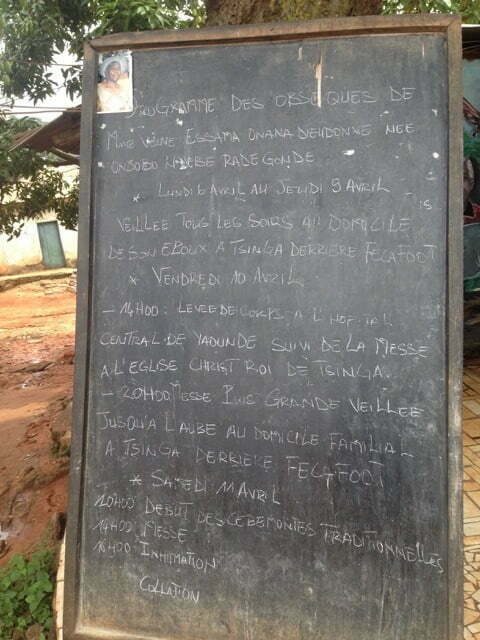 PROGRAMME DES OBSEQUES DE
MME VEUVE ESSAMA ONANA DIEUDONNE NEE
RADEGONDE
* LUNDI 6 AVRIL AU JEUDI 9 AVRIL 15
VEILLEE TOUS LES SOIRS AU DOMICILE
DE SON EPOUX A TSINGA DERRIERE FECAFOOT
* VENDREDI 10 AVRIL
- 14H00 : LEVEE DE CORPS A L'HOPITAL
CENTRAL DE YAOUNDE SUIVI DE LA MESSE
A L'EGLISE CHRIST ROI DE TSINGA.
- 20H00 MESSE PUIS GRANDE VEILLEE
JUSQU'A L'AUBE AU DOMICILE FAMILIAL
A TSINGA DERRIERE FECAFOOT
* SAMEDI 11 AVRIL
10H00 DEBUT DES CEREMONIES TRADITIONNELLES
14H00 MESSE
16H00 INHUMATION
COLLATION